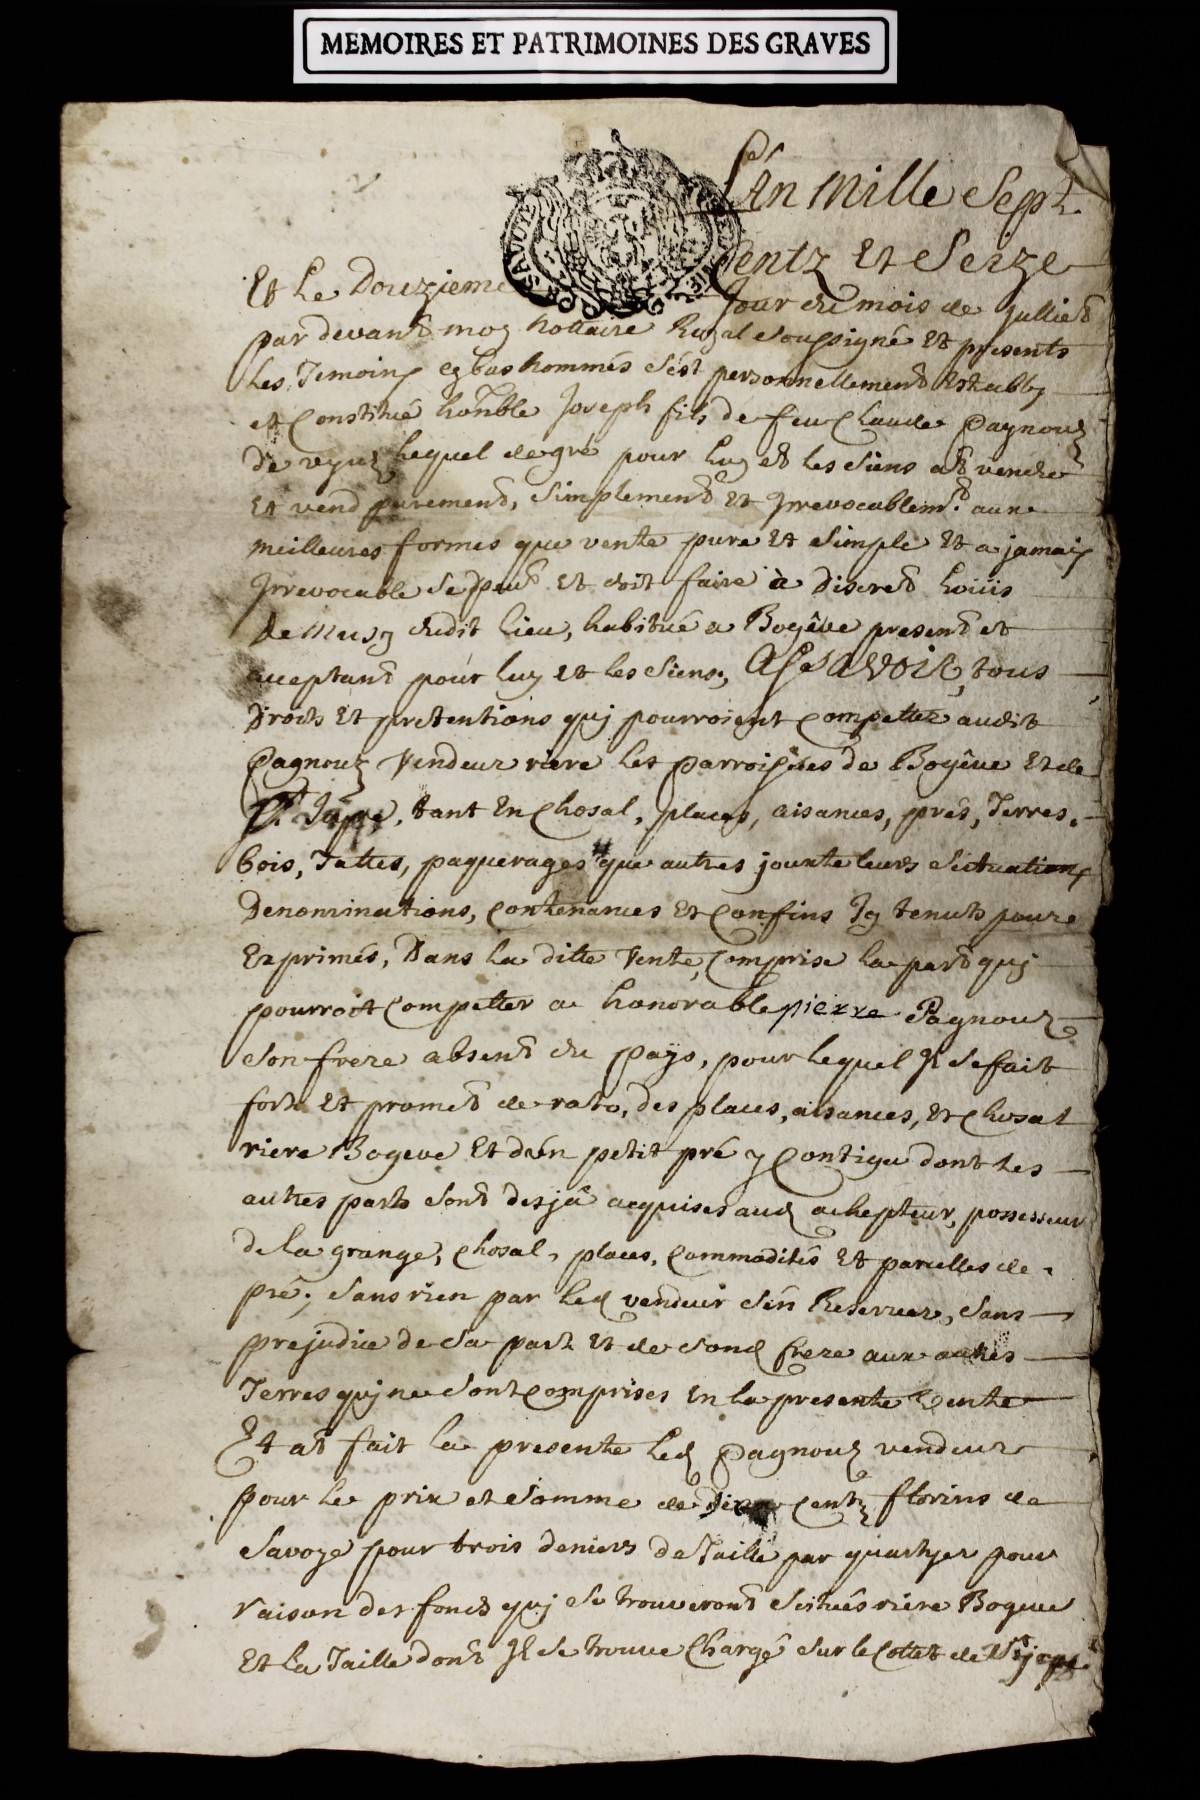 MEMOIRES ET PATRIMOINES DES GRAVES
L'án Mille Sept
Centz Et Seize
SAVOYE
Et Le Douzieme Jour du mois de Jullied
par devant moy Nottaire Royal soussigné Et presents
Les Temoins Egbas nommés s'ést personnellement Estably
et Constitué honble Joseph fils de feu Claude Pagnouz
De Lequel de gré pour Luy et les Siens at vendu
Et vend purement, Simplement Et Irrevocablemt. aux
meilleures formes que vente pure Et Simple Et a jamais
Irrevocable se peut Et doit faire à Discret Loüis
De Musy dudit Lieu, habitué a Bogêve present et
acceptant pour luy Et les Siens, ASCAVOIR, tous
Droits Et pretentions quj pourroient Compettez audit
Pagnouz Vendeur riere Les parroisses de Bogêve Et de
St. , tant En Chosal, places, aisances, prés, Terres,
bois, Tattes, paquerages que autres jouxte leurs Situations
Denominations, Contenances Et Confins Jy tenuts pour
Exprimés, Dans La ditte Vente, Comprise La part quj
pourroit Competter a honorable pierre Pagnouz
Son frere absent du pays, pour Lequel Jl Se fait
fort Et promet de rato, des places, aisances, Et Chosal
riere Bogeve Et d'ún petit pré y Contigu dont Les
autres parts Sont desjâ acquises aud achepteur, possesseur
de La grange, Chosal, places, Commodités Et parcelles de
pré, Sans rien par Led vendeur s'én Reserver, Sans
prejudice de Sa part Et de Sond frere aux autres
Terres quj ne Sont Comprises En La presente Vente
Et at fait La presente Led Pagnouz vendeur
pour Le prix et Somme de Centz florins de
Savoye pour trois deniers de Taille par quartyer pour
raison des fonds quj Se trouveront Scitués riere Bogeve
Et La Taille dont Jl Se trouve Chargé Sur le Cottet de St